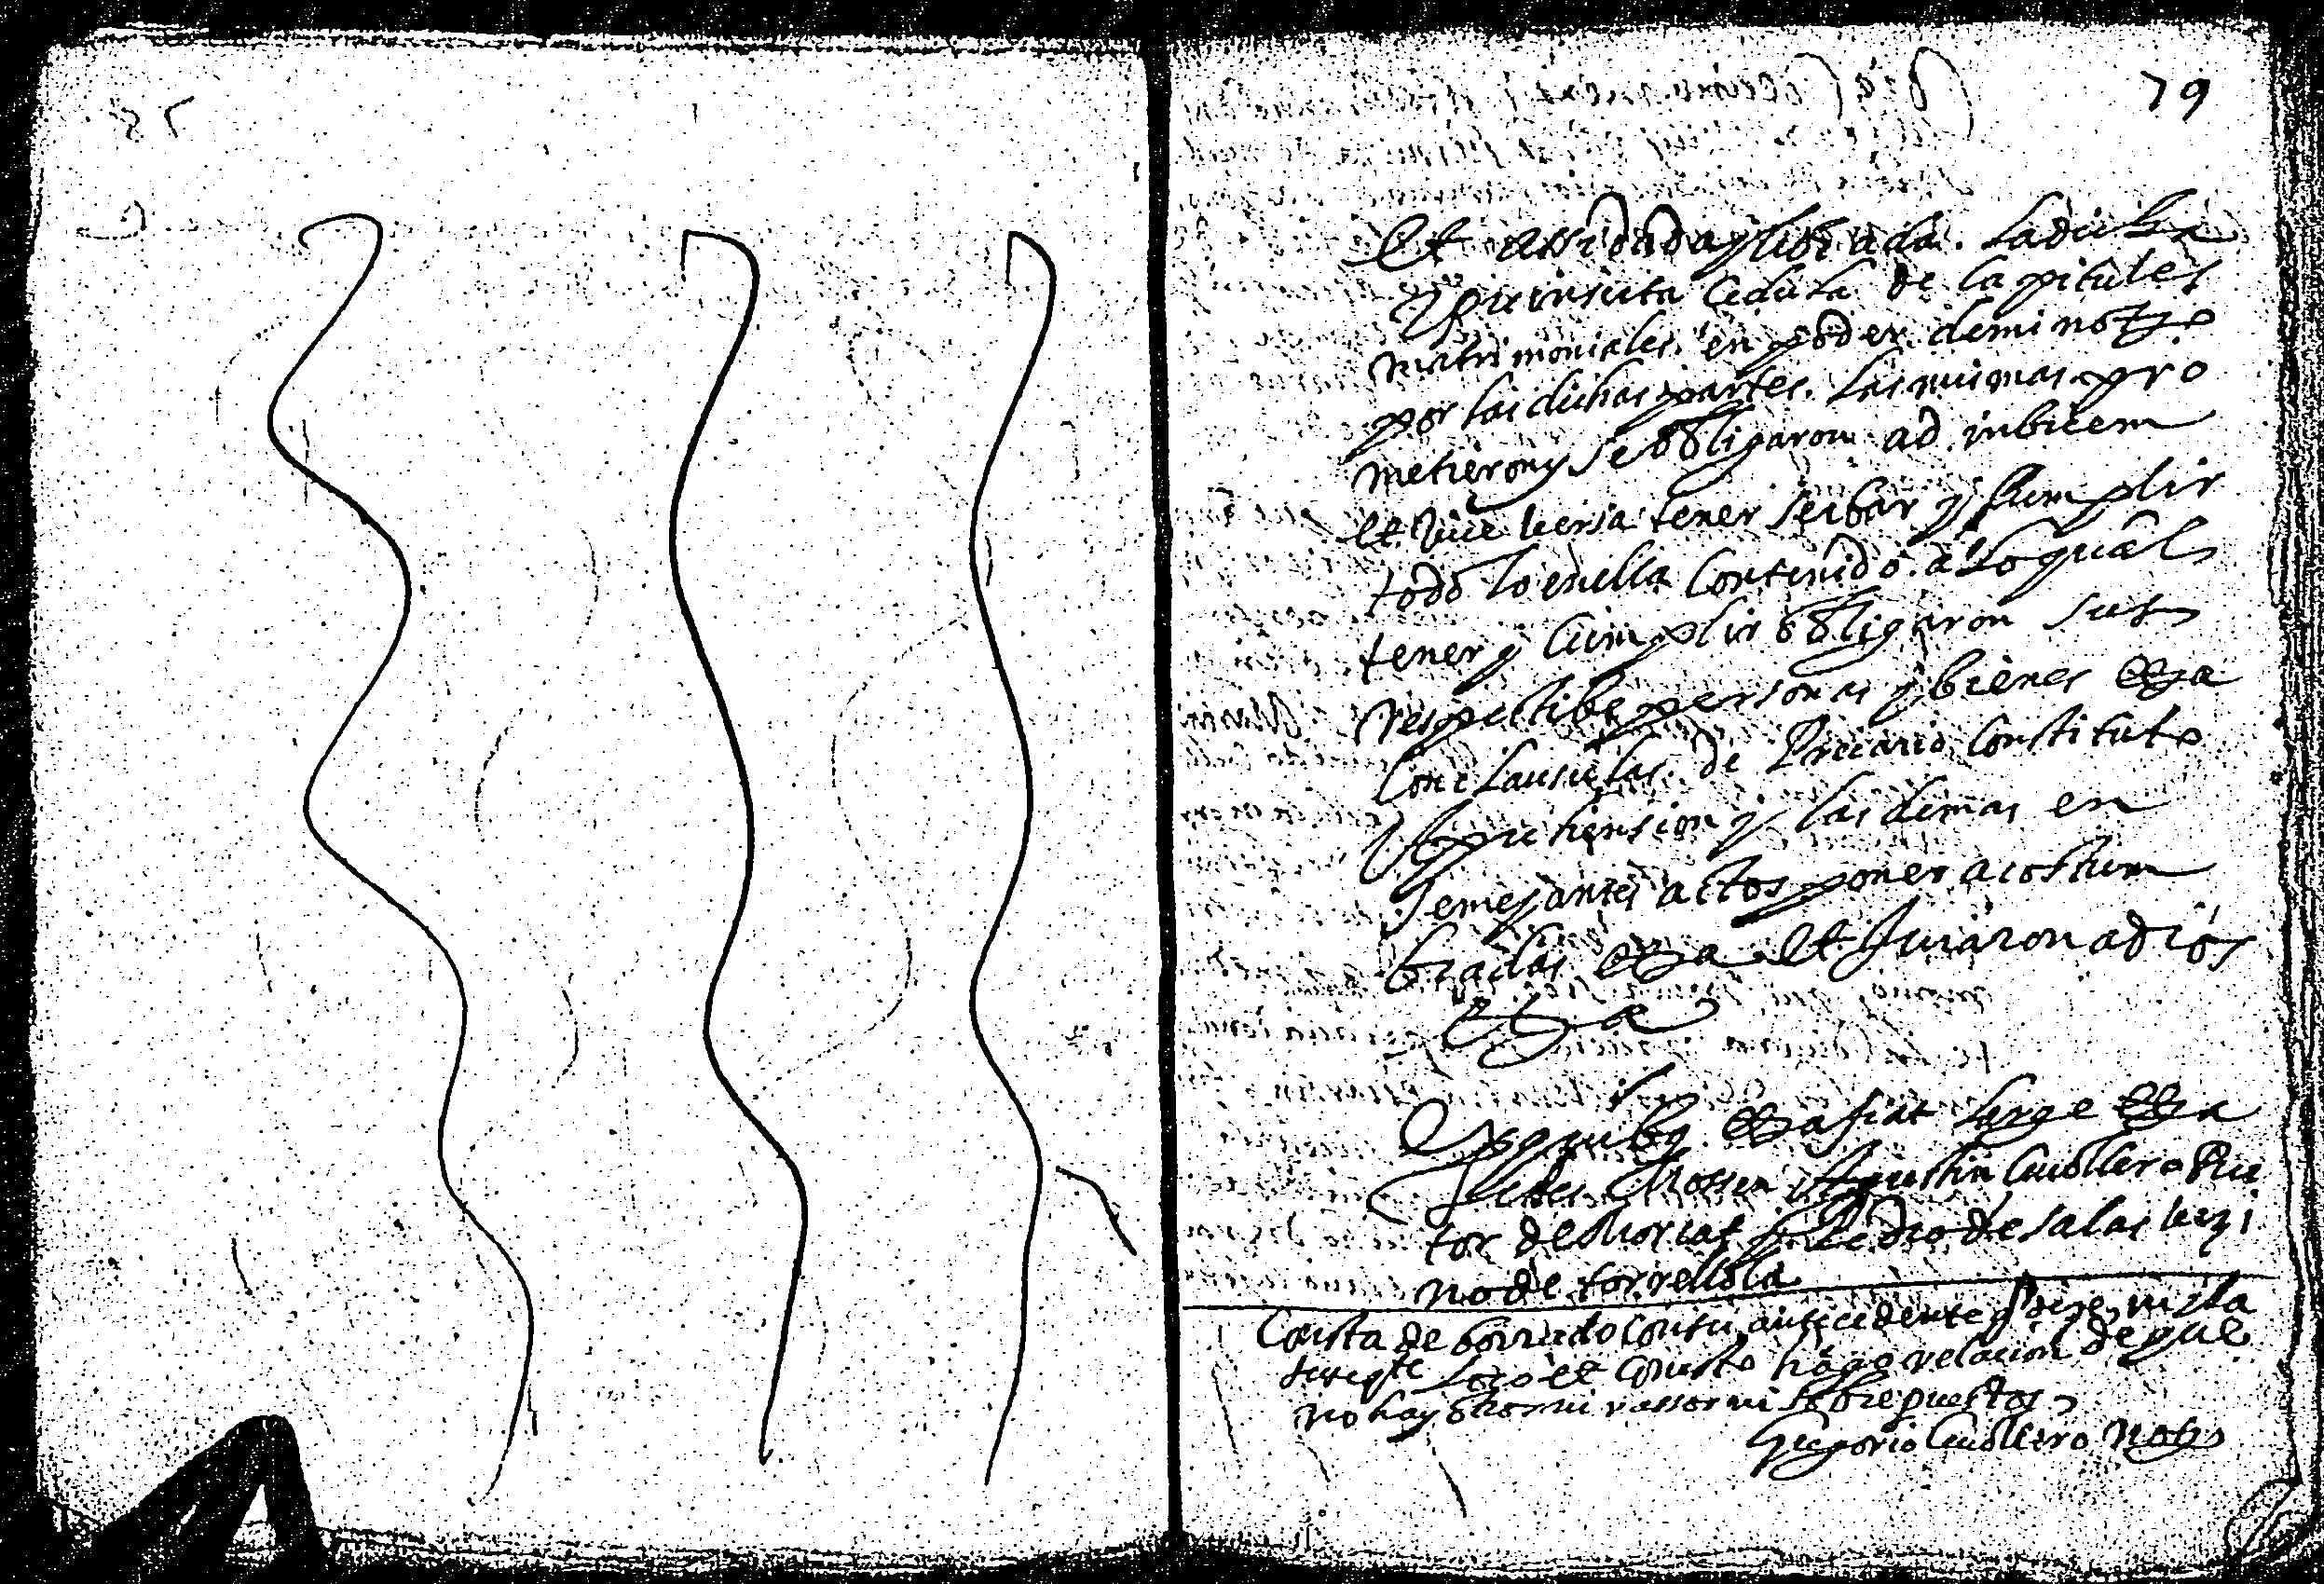 79
Et assi dada y librada. La dicha
Preinserta Cedula de Capitules
matrimoniales en poder de mi not.º
por las dichas partes. Las mismas pro
metieron y se obligaron ad inbicem
et vice versa tener serbar y Cumplir
todo lo en ella Contenido. a lo qual
tener y Cumplir obligaron sus
respectibe personas y bienes etta
Con clausulas de Precario Constituto
Aprehension y las demas en
Semejantes actos poner acostum
bradas etta et Juraron a dios
etta
Ex quibus etta fiat large etta
Testes Mossen Agustin Cubllero Rec
tor de y Pedro de Salas vezi
no de torrellola
Consta de borrado con su antecedente y
loco et Consto hago relacion de que
no hay otros ni rassos ni sobrepuestos
Gregorio Cubllero Noto